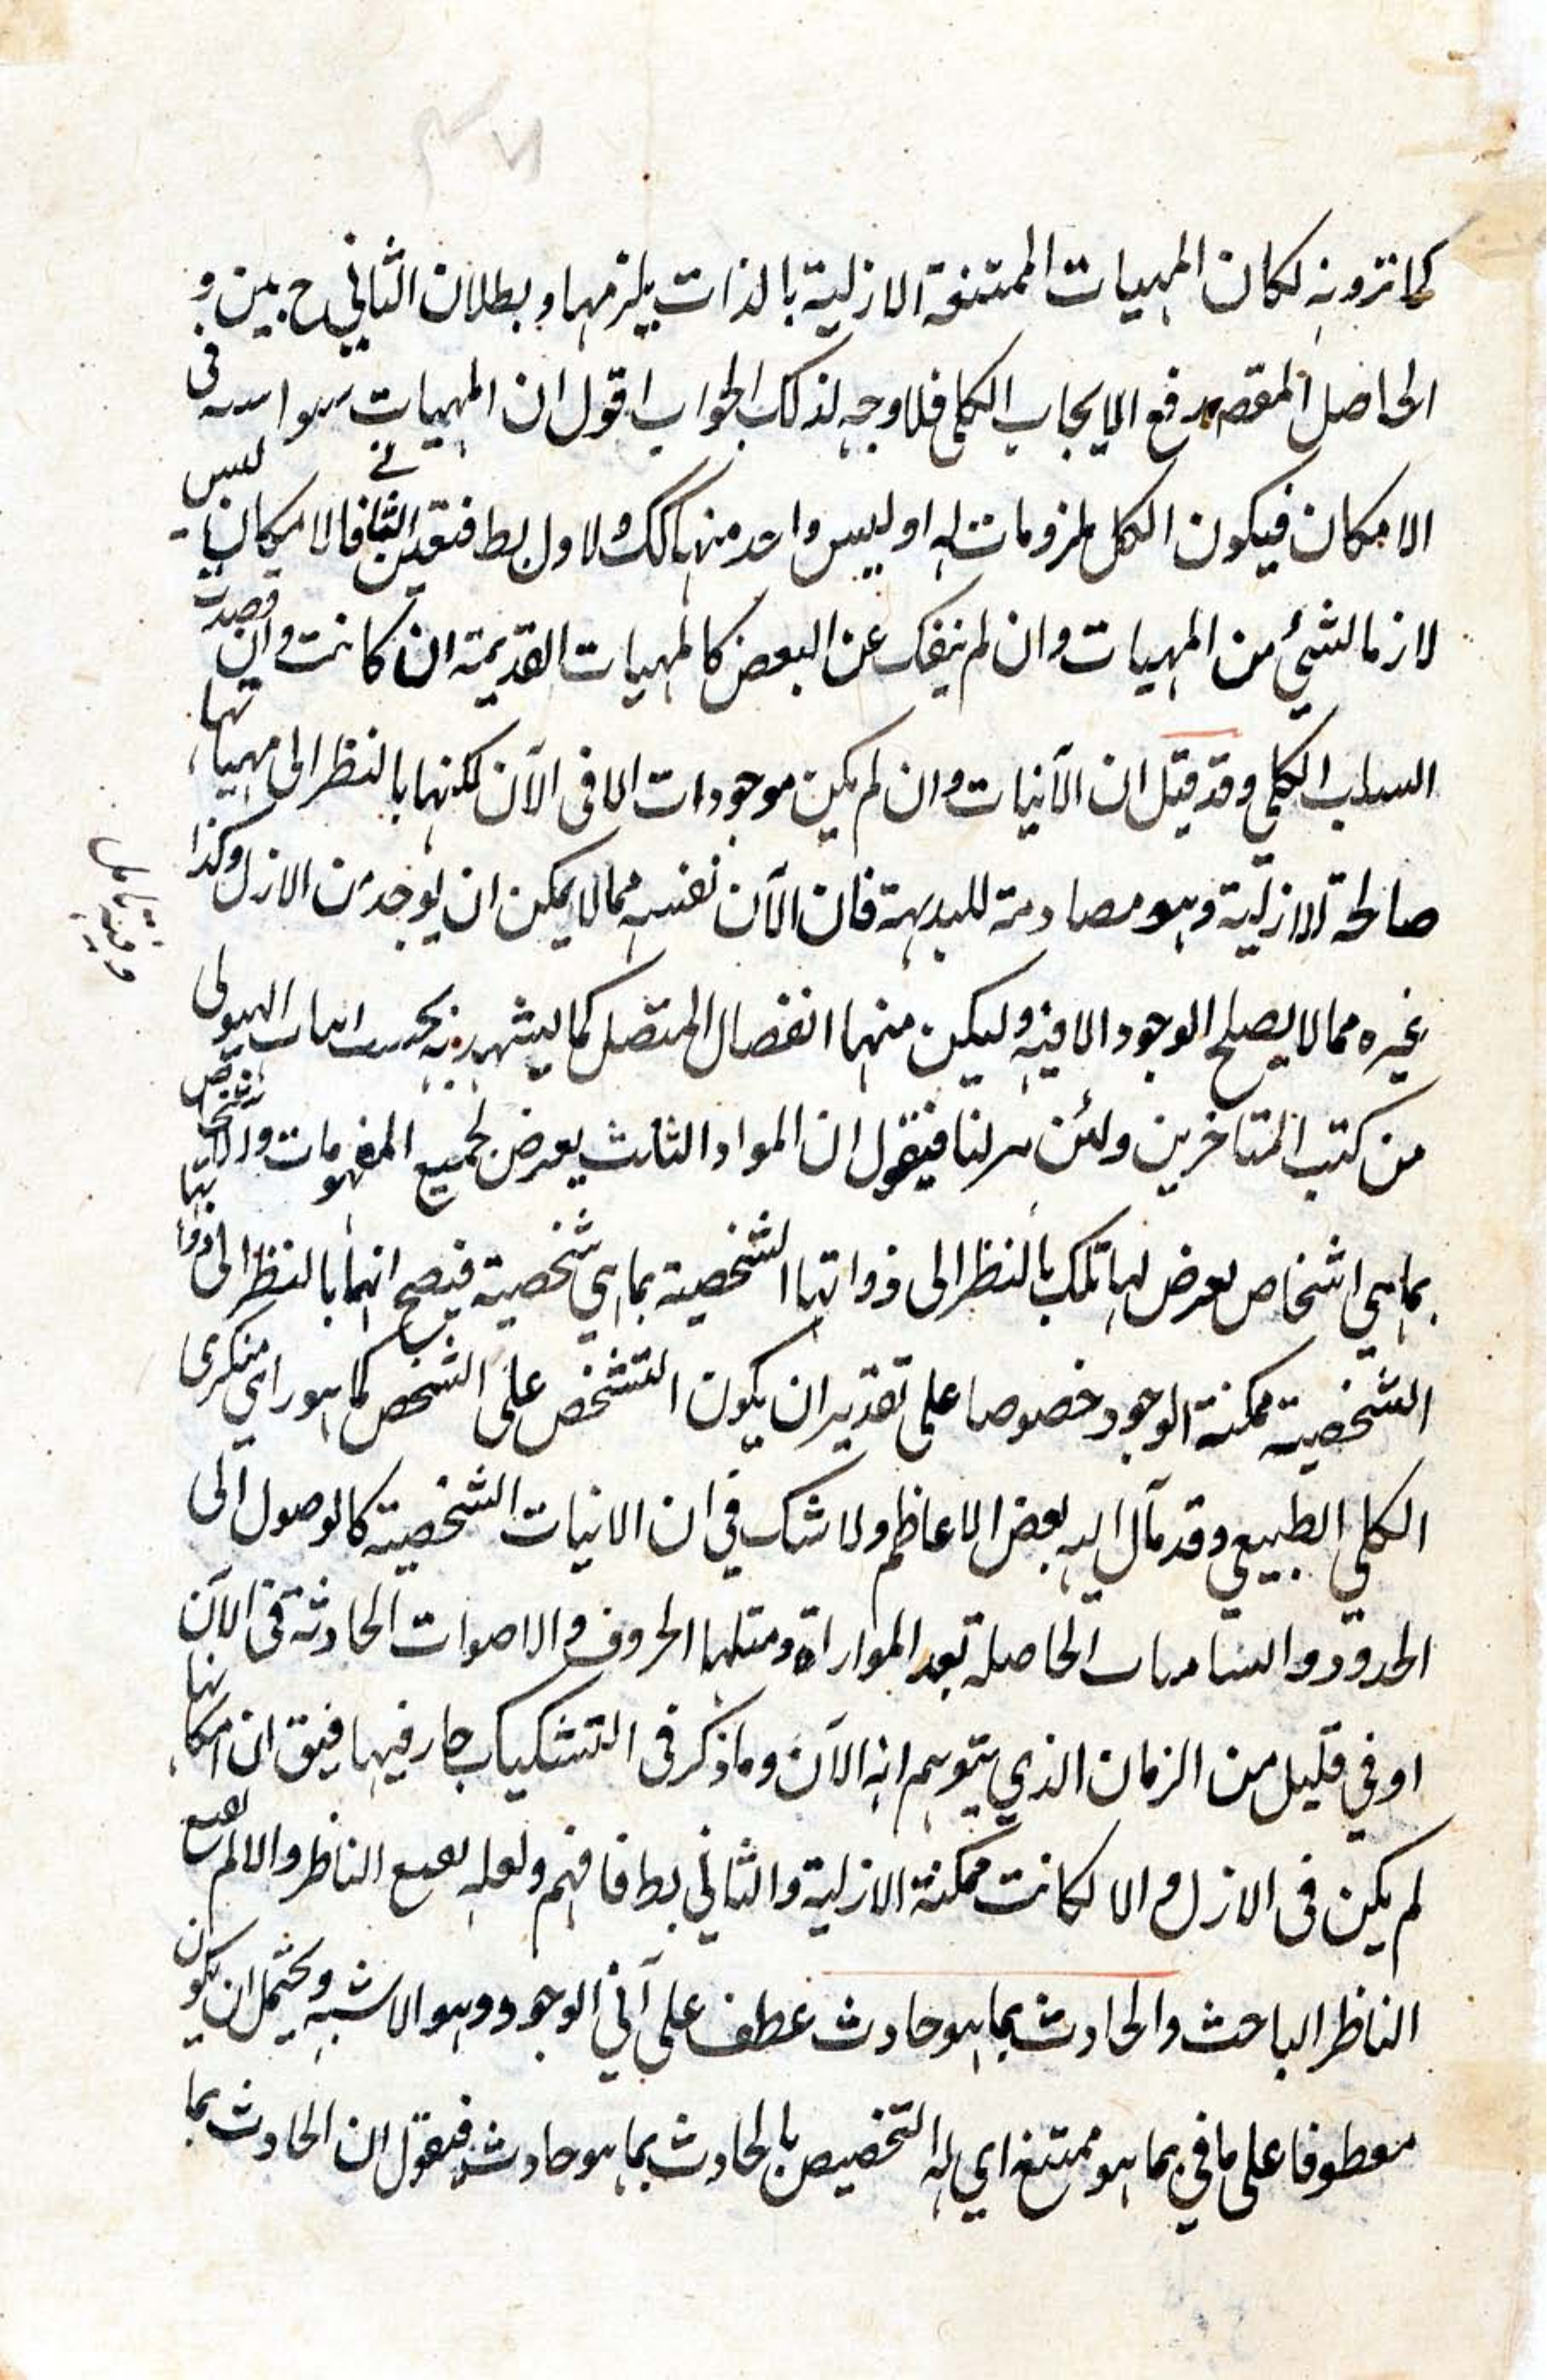 كما ترونه لكان المهيات الممتنعة الازلية بالذات يلزمها وبطلان الثاني ح بين و
الحاصل المقصم رفع الايجاب الكلى فلا وجه لذلك الجواب اقول ان المهيات سواسية فى
الامكان فيكون الكل ملزومات له او ليس واحد منها كك والاول بط فتعين الثانے فالامكان ليس
لازما لشئ من المهيات وان لم ينفك عن البعض كالمهيات القديمة ان كانت وان قصدت
السلب الكلى وقد قيل ان الآنيات وان لم يكن موجودات الا فى الآن لكنها بالنظر الى مهياتها
صالحة الازلية وهو مصادمة للبديهة فان الآن نفسه مما لا يمكن ان يوجد من الازل وكذا
غيره مما لا يصلح الوجود الا فيه وليكن منها انفصال المتصل كما يشهد به اثبات الهيولى
من كتب المتاخرين ولئن نزلنا فنقول ان المواد الثلث يعرض لجميع المفهومات والاشخاص
بما هي اشخاص يعرض لها تلك بالنظر الى ذواتها الشخصية بما هي شخصية فيصح انها بالنظر الى ذواتها
الشخصية ممكنة الوجود خصوصا على تقدير ان يكون التشخص على الشخص كما هو راى منكرى
الكلي الطبيعي وقد مآل اليه بعض الاعاظم ولا شك في ان الانيات الشخصية كالوصول الى
الحدود و الحاصلة بعد الموازاة ومثلها الحروف والاصوات الحادثة فى الآن
او في قليل من الزمان الذي يتوهم انه الآن وما ذكر فى التشكيك جار فيها فيق ان امكانها
لم يكن فى الازل والا لكانت ممكنة الازلية والثاني بط فافهم ولعله لينفع الناظر والا لم ينفع
الناظر الباحث والحادث بما هو حادث عطف على آني الوجود وهو الاشبه ويحتمل ان يكون
معطوفا على ما في بما هو ممتنع اي له التخصيص بالحادث بما هو حادث فنقول ان الحادث بما
وفيه تامل